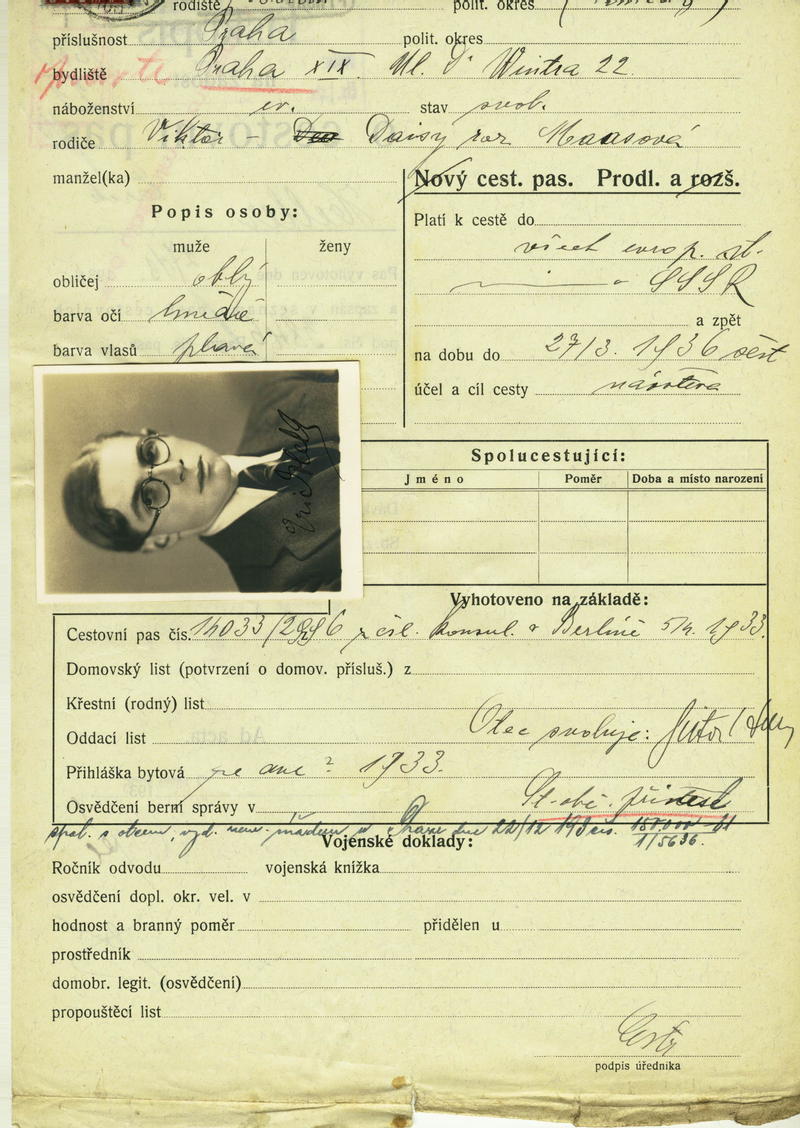 rodiště
polit. okres
příslušnost Praha polit. okres
bydliště Praha XIX. Ul. Dr Wintra 22.
náboženství ev. stav svob.
rodiče Viktor – Daisy roz Maasová
manžel(ka)
Nový cest. pas. Prodl. a rozš.
Popis osoby:
muže ženy
obličej oblý
barva očí hnědé
barva vlasů plavé
Platí k cestě do
všech evrop. st.
SSSR
a zpět
na dobu do 27/3. 1936
účel a cíl cesty návštěva
Spolucestující:
Jméno Poměr Doba a místo narození
Vyhotoveno na základě:
Cestovní pas čís. konsul. v Berlíně 1933.
Domovský list (potvrzení o domov. přísluš.) z
Křestní (rodný) list
Oddací list
Otec svoluje:
Přihláška bytová ze dne ? 1933.
Osvědčení berní správy v
St. obč. přinesl
spol. s otcem, v Praze dne 22/12
Vojenské doklady:
Ročník odvodu vojenská knížka
osvědčení dopl. okr. vel. v
hodnost a branný poměr přidělen u
prostředník
domobr. legit. (osvědčení)
propouštěcí list
podpis úředníka